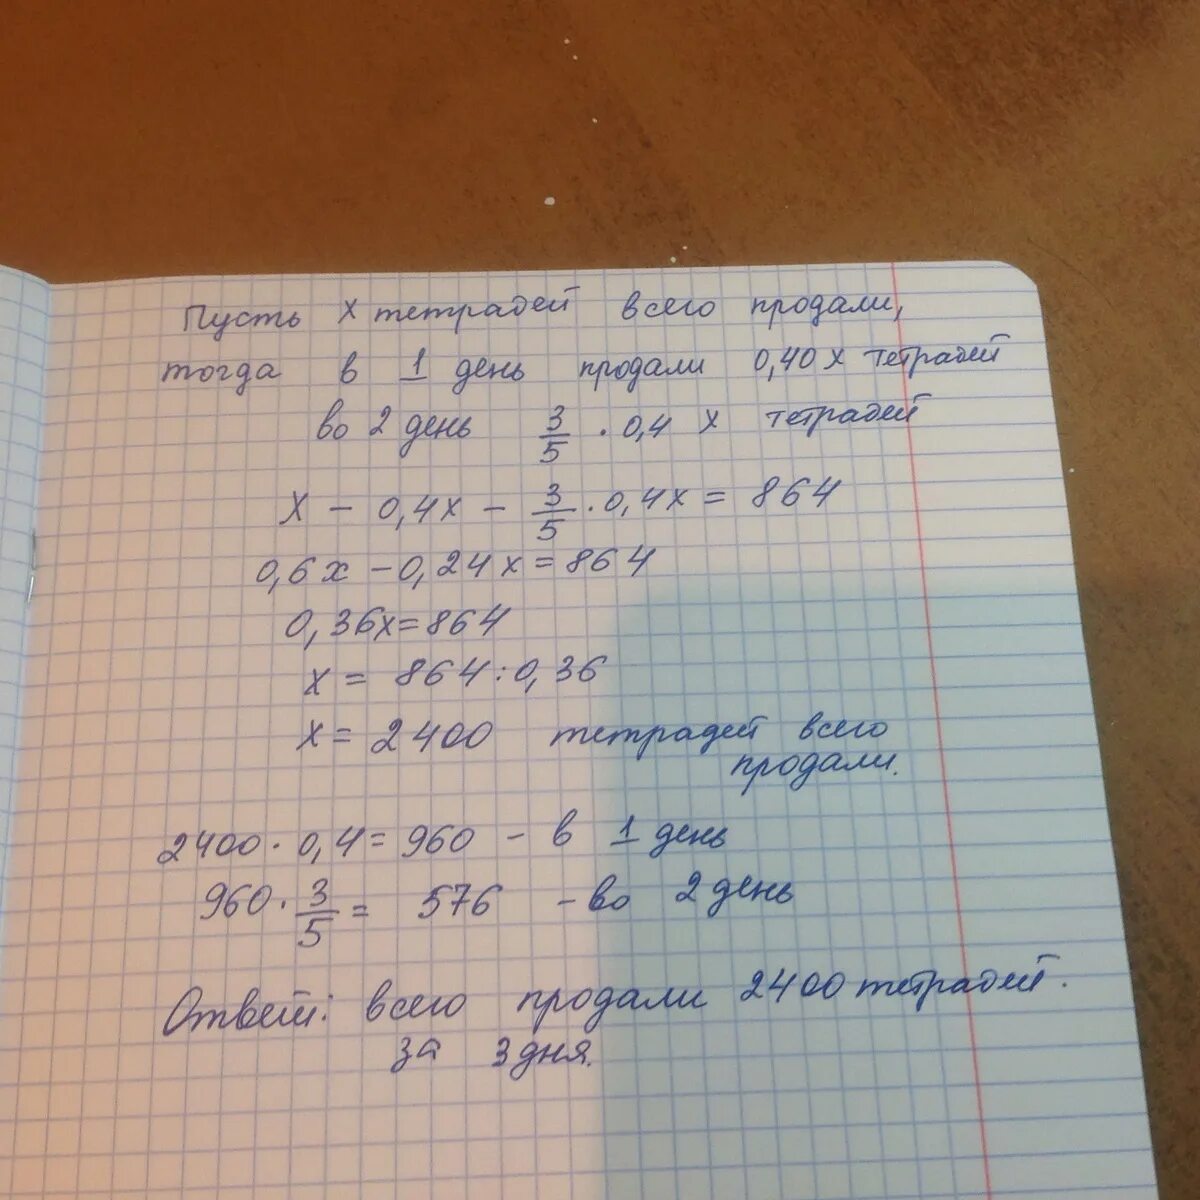 Пусть x тетрадей всего продали,
тогда в 1 день продали 0,40 x тетрадей
во 2 день 3/5 · 0,4 x тетрадей
x - 0,4x - 3/5 · 0,4x = 864
0,6x - 0,24x = 864
0,36x = 864
x = 864 : 0,36
x = 2400 тетрадей всего
продали.
2400 · 0,4 = 960 - в 1 день
960 · 3/5 = 576 - во 2 день
Ответ: всего продали 2400 тетрадей.
за 3 дня.